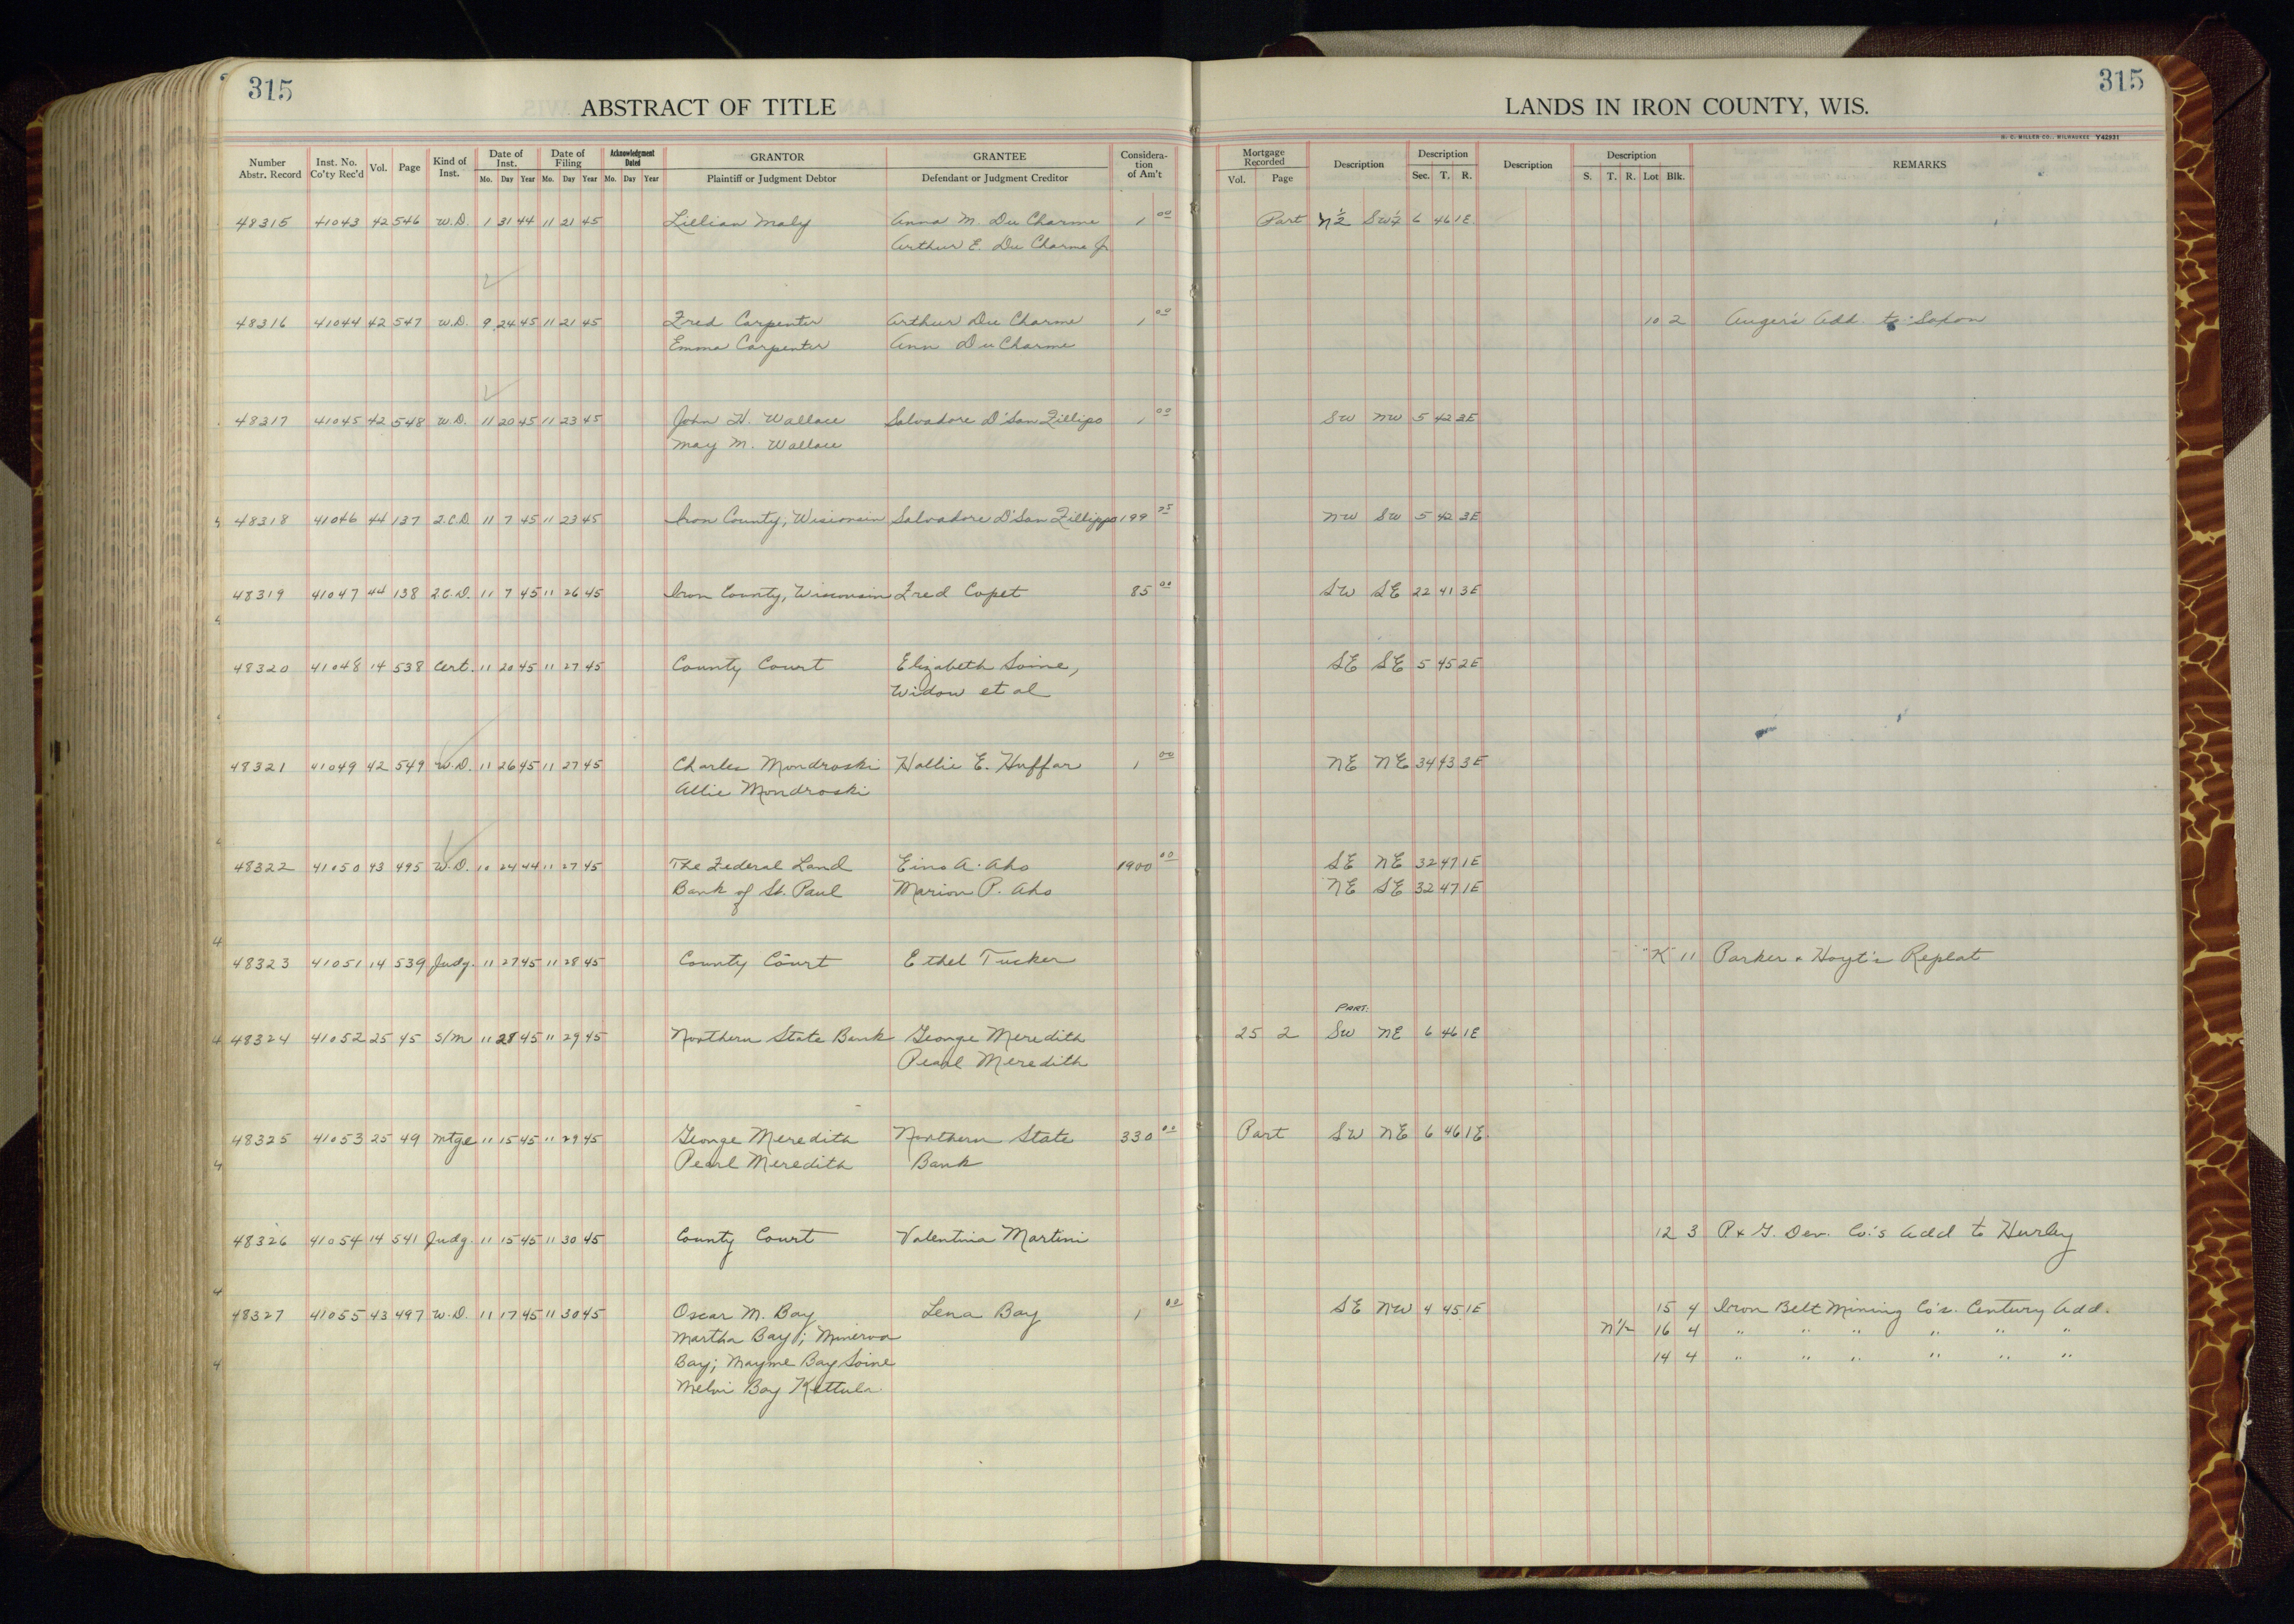 315
ABSTRACT OF TITLE
LANDS IN IRON COUNTY, WIS.
315
H. C. MILLER CO., MILWAUKEE Y42931
Number Abstr. Record | Inst. No. Co'ty Rec'd | Vol. | Page | Kind of Inst. | Date of Inst. Mo. Day Year | Date of Filing Mo. Day Year | Acknowledgment Dated Mo. Day Year | GRANTOR Plaintiff or Judgment Debtor | GRANTEE Defendant or Judgment Creditor | Consideration of Am't | Mortgage Recorded Vol. Page | Description | Description Sec. T. R. | Description | Description S. T. R. Lot Blk. | REMARKS
48315 41043 42 546 W.D. 1 31 44 11 21 45 Lillian Maly Anna M. Du Charme 1 00 Part N½ SW¼ 6 46 1E
Arthur E. Du Charme Jr
48316 41044 42 547 W.D. 9 24 45 11 21 45 Fred Carpenter Arthur Du Charme 1 00 10 2 Auger's Add. to Saxon
Emma Carpenter Ann Du Charme
48317 41045 42 548 W.D. 11 20 45 11 23 45 John H. Wallace Salvadore D'San Fillipo 1 00 SW NW 5 42 3E
May M. Wallace
48318 41046 44 137 2.C.D. 11 7 45 11 23 45 Iron County, Wisconsin Salvadore D'San Fillippo 199 75 NW SW 5 42 3E
48319 41047 44 138 2.C.D. 11 7 45 11 26 45 Iron County, Wisconsin Fred Copet 85 00 SW SE 22 41 3E
48320 41048 14 538 Cert. 11 20 45 11 27 45 County Court Elizabeth Soine, SE SE 5 45 2E
Widow et al
48321 41049 42 549 W.D. 11 26 45 11 27 45 Charles Mondroski Hallie E. Huffar 1 00 NE NE 34 43 3E
Allie Mondroski
48322 41050 43 495 W.D. 10 24 44 11 27 45 The Federal Land Eino A. Aho 1900 00 SE NE 32 47 1E
Bank of St. Paul Marion P. Aho NE SE 32 47 1E
48323 41051 14 539 Judg. 11 27 45 11 28 45 County Court Ethel Tucker "K" 11 Parker & Hoyt's Replat
PART.
48324 41052 25 45 S/M 11 28 45 11 29 45 Northern State Bank George Meredith 25 2 SW NE 6 46 1E
Pearl Meredith
48325 41053 25 49 Mtge 11 15 45 11 29 45 George Meredith Northern State 330 00 Part SW NE 6 46 1E.
Pearl Meredith Bank
48326 41054 14 541 Judg. 11 15 45 11 30 45 County Court Valentina Martini 12 3 P & G. Dev. Co's Add to Hurley
48327 41055 43 497 W.D. 11 17 45 11 30 45 Oscar M. Bay Lena Bay 1 00 SE NW 4 45 1E 15 4 Iron Belt Mining Co's. Century Add.
Martha Bay; Minerva N½ 16 4 " " " " " "
Bay; Mayme Bay Soine 14 4 " " " " " "
Melvi Bay Kettula